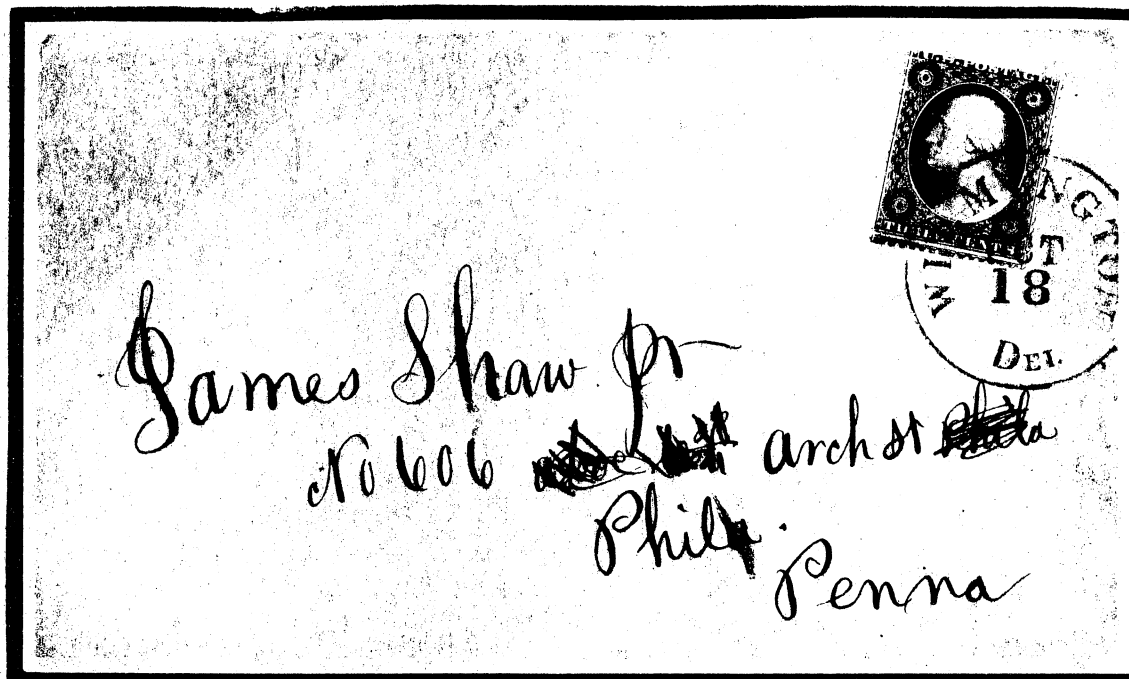 WILMINGTON
18
DEL.
James Shaw Jr
No 606 arch st
Phila.
Penna